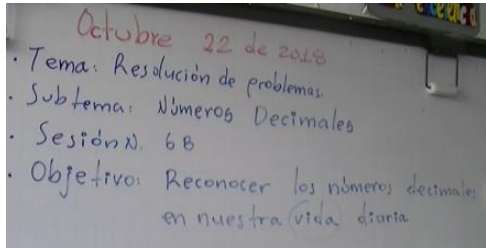 Octubre 22 de 2018
· Tema: Resolución de problemas.
· Subtema: Números Decimales
· Sesión N. 6B
· Objetivo: Reconocer los números decimales
en nuestra vida diaria